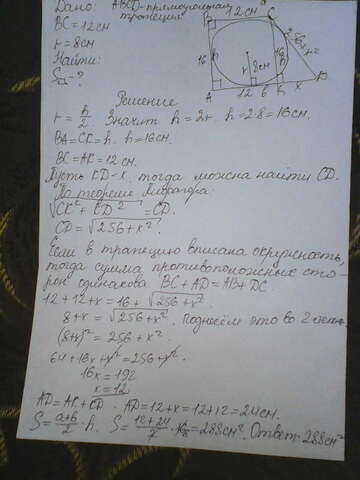 Дано: ABCD-прямоугольная
трапеция
BC=12см
r=8см
Найти:
S-?
B 12см C
16 16 √256+x²
r 8см
A 12 6 K x D
Решение
r = h/2. Значит h=2r. h=2·8=16см.
BA=CK=h. h=16см.
BC=AK=12см.
Пусть KD-x, тогда можна найти CD.
По теореме Пифагора:
√CK²+KD² =CD.
CD=√256+x².
Если в трапецию вписана окружность,
тогда сумма противоположных сто-
рон одинакова BC+AD=AB+DC
12+12+x=16+√256+x².
8+x=√256+x². Подносем это во 2
(8+x)²=256+x².
64+16x+x²=256+x².
16x=192
x=12
AD=AK+KD. AD=12+x=12+12=24см.
S=a+b/2·h. S=12+24/2·16=288см². Ответ: 288см²